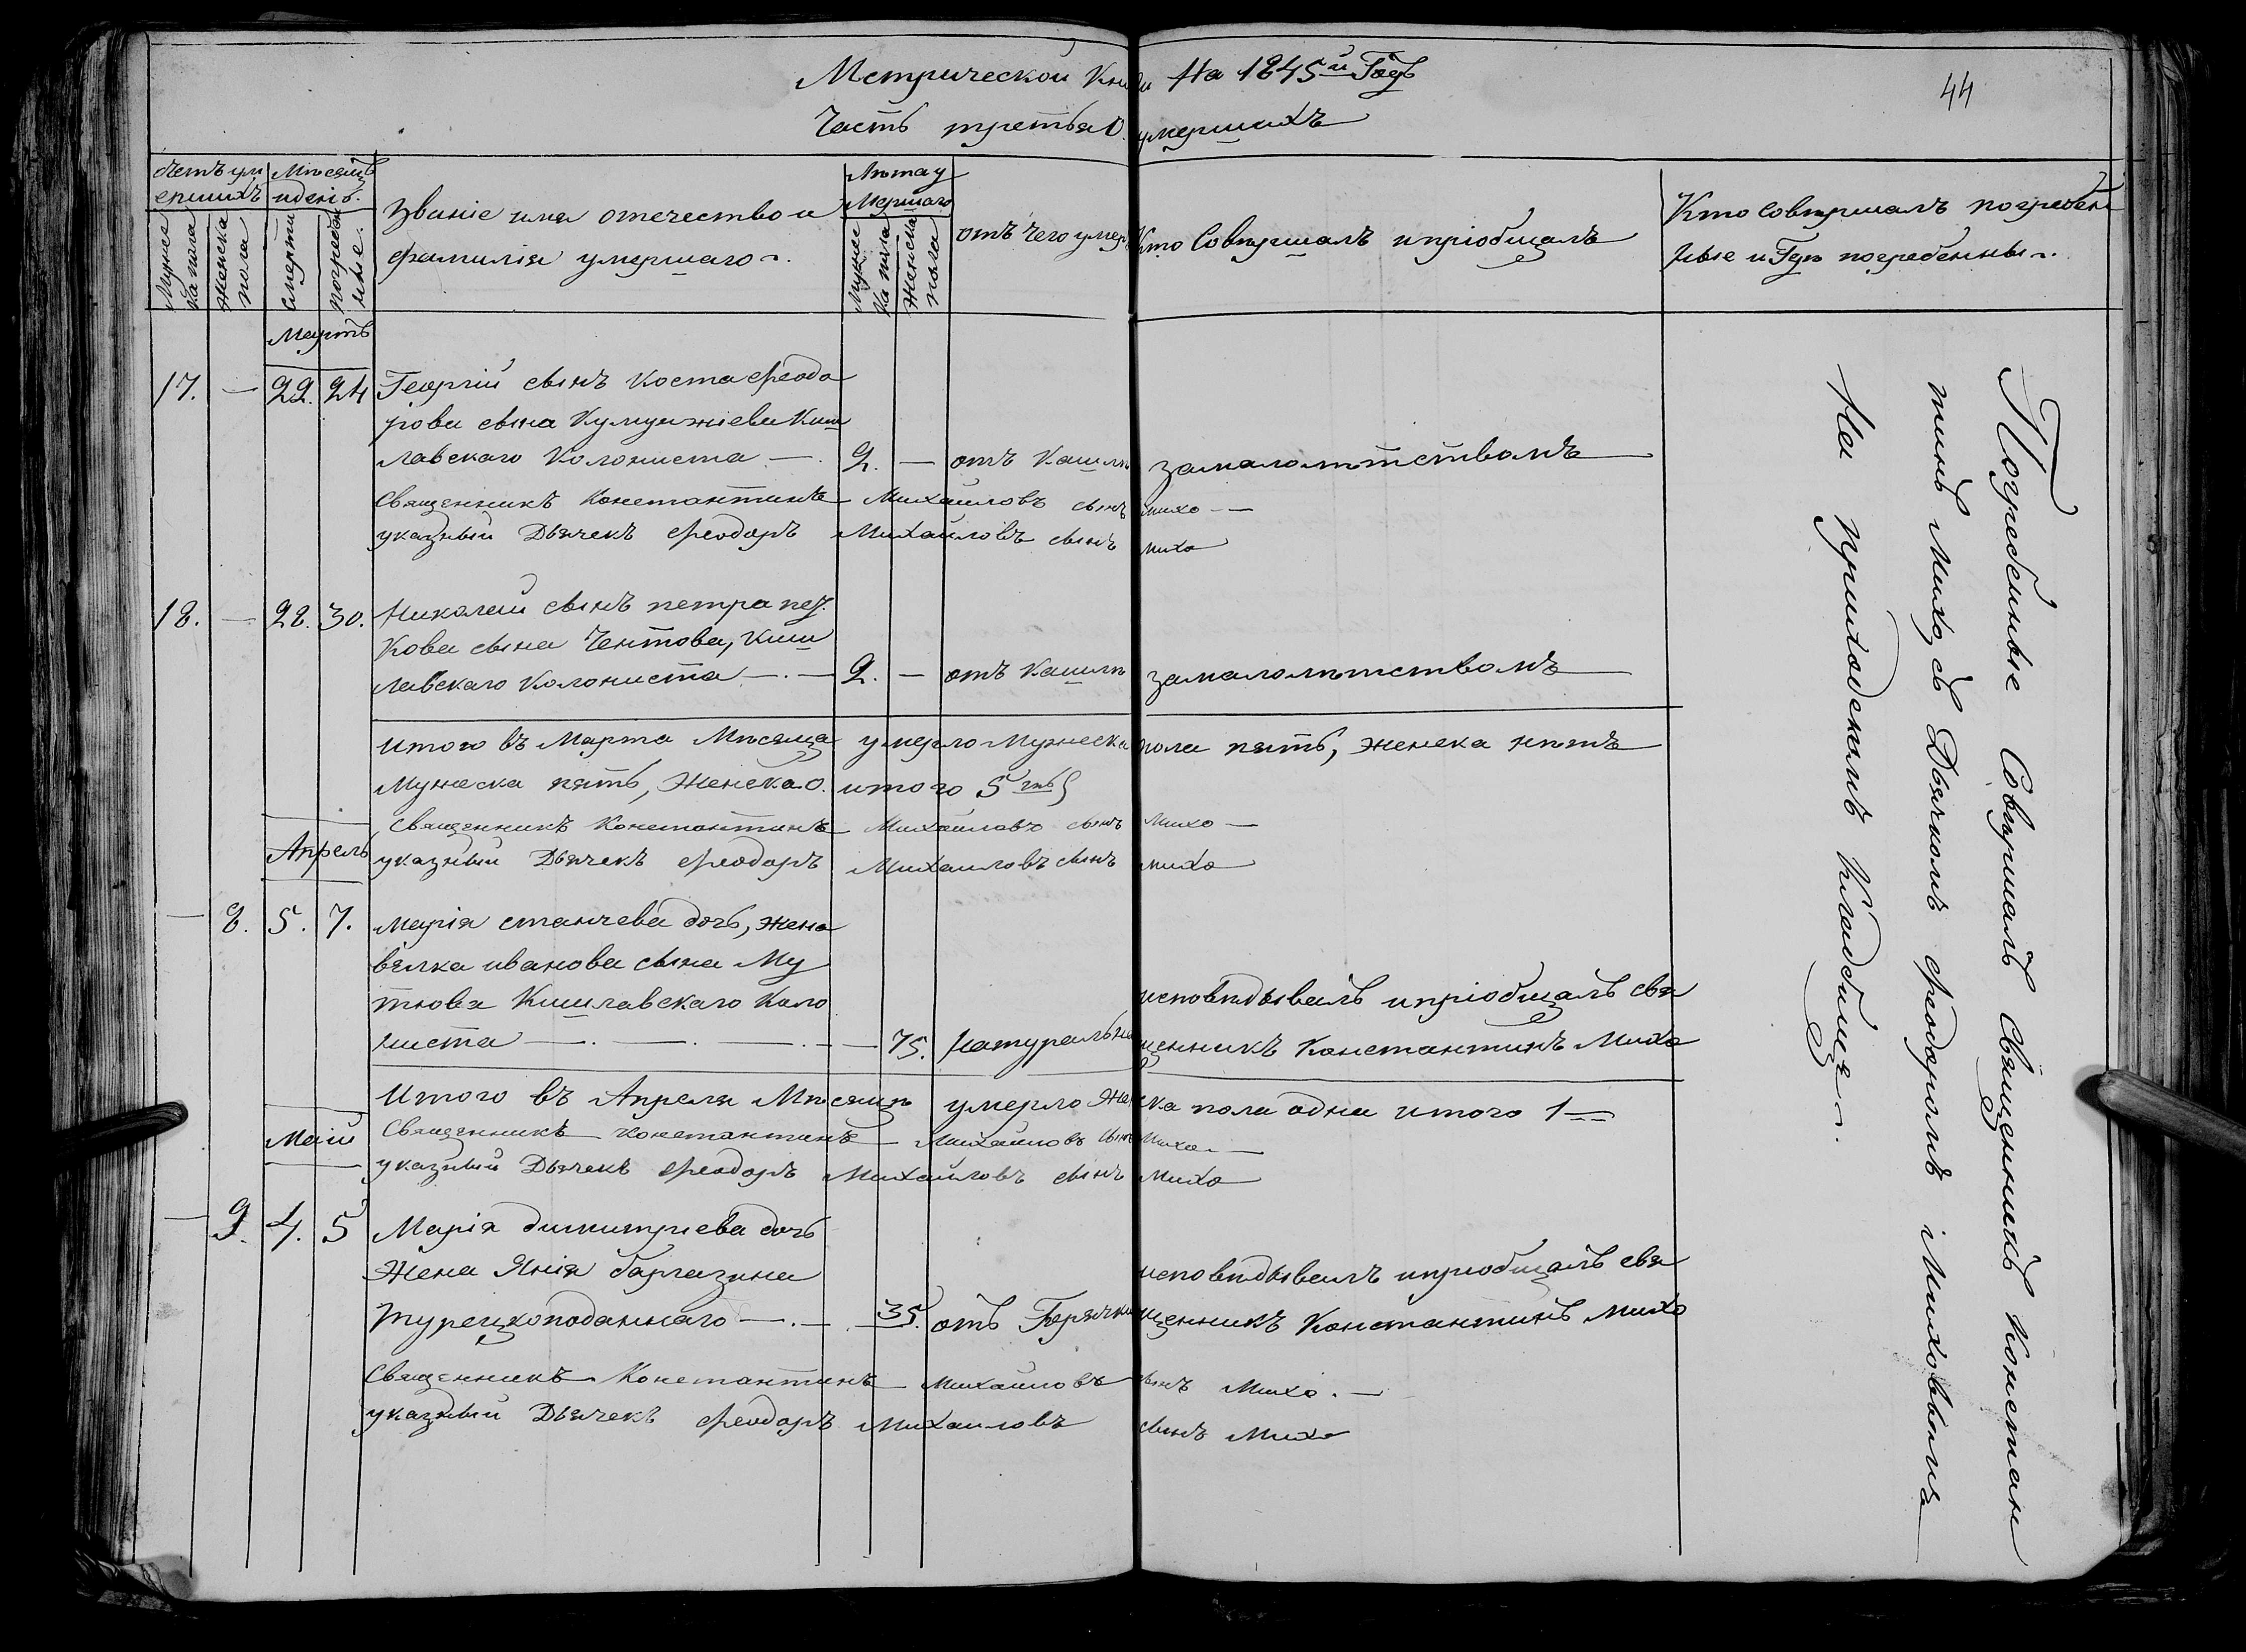 Метрической Книги На 1845й Годъ
44
Часть третья О умершихъ
Счетъ ум
ершихъ
Мѣсяцъ
и день.
Мужес
ка пола
Женска
пола
смерти
погребен
ные.
Званіе имя отечество и
фамилія умершаго
Лѣта у
Мершаго
Мужес
ка пола
Женска
пола
отъ чего умеръ
Кто Совершалъ и пріобщалъ
Кто Совершалъ погребен
ные и Гдѣ погребенны
Мартъ
17. — 22. 24 Георгій сынъ Коста Феодо
рова сына Кумужиева Киш
лавскаго Колониста — 2. — отъ Кашлѣ замалолѣтствомъ
Священникъ Константинъ Михайловъ сынъ Михо —
указный Дьячекъ Феодоръ Михайловъ сынъ Михо
18. — 28. 30. Николай сынъ петра пет
Кова сына Чентова, Киш
лавскаго Колониста — . — 2. — отъ Кашлѣ замалолѣтствомъ
Итого въ Марта Мѣсяца умерло Мужеска пола пять, Женска нѣтъ
Мужеска пять, Женска 0. итого 5ть
Священникъ Константинъ Михайловъ сынъ Михо —
Апрель
указный Дьячекъ Феодоръ Михайловъ сынъ Михо
— 8. 5. 7. Марія станчева дочь, жена
вѣлка иванова сына Му
тнова Кишлавскаго Коло
ниста — . — . — . — 75. Натурально
исповѣдывалъ и пріобщалъ свя
щенникъ Константинъ Михо
Итого въ Апреля Мѣсяцѣ умерло Женска пола одна итого 1
Маій
Священникъ Константинъ Михайловъ сынъ Михо —
указный Дьячекъ Феодоръ Михайловъ сынъ Михо
— 9. 4. 5 Марія димитриева дочь
Жена Янія барлазина
турецкоподаннаго — . — . 35. отъ Горячки
исповѣдывалъ и пріобщалъ свя
щенникъ Константинъ Михо
Священникъ Константинъ Михайловъ сынъ Михо. —
указный Дьячекъ Феодоръ Михайловъ сынъ Михо
Погребенные Совершалъ Священникъ Констан
тинъ Михо, съ Дьячкомъ Феодоромъ Миховымъ
На приходскимъ Кладбище